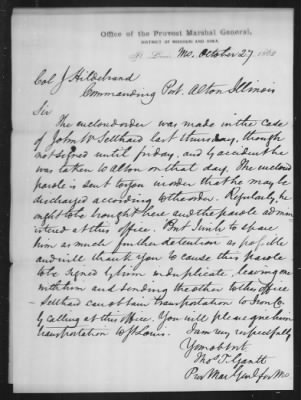 Office of the Provost Marshal General,
DISTRICT OF MISSOURI AND IOWA.
St. Louis, Mo. October 27 186
Col J Hildebrand
Commanding Post. Alton Illinois
Sir
The enclosed order was made in the case
of John W Sellhard last thursday, though
not signed until friday, and by accident he
was taken to Alton on that day. The enclosed
parole is sent to you in order that he may be
discharged according to the order. Regularly, he
ought to be brought here and the parole admin
istered at this office. But I wish to spare
him as much further detention as possible
and will thank you to cause this parole
to be signed by him in duplicate, leaving one
with him and sending the other to this office
Sellhard can obtain transportation to Iron Co
by calling at this office. You will please give him
transportation to St Louis.
I am very respectfully
Your obt svt
Thos T. Gantt
Pro Mar Genl for Mo